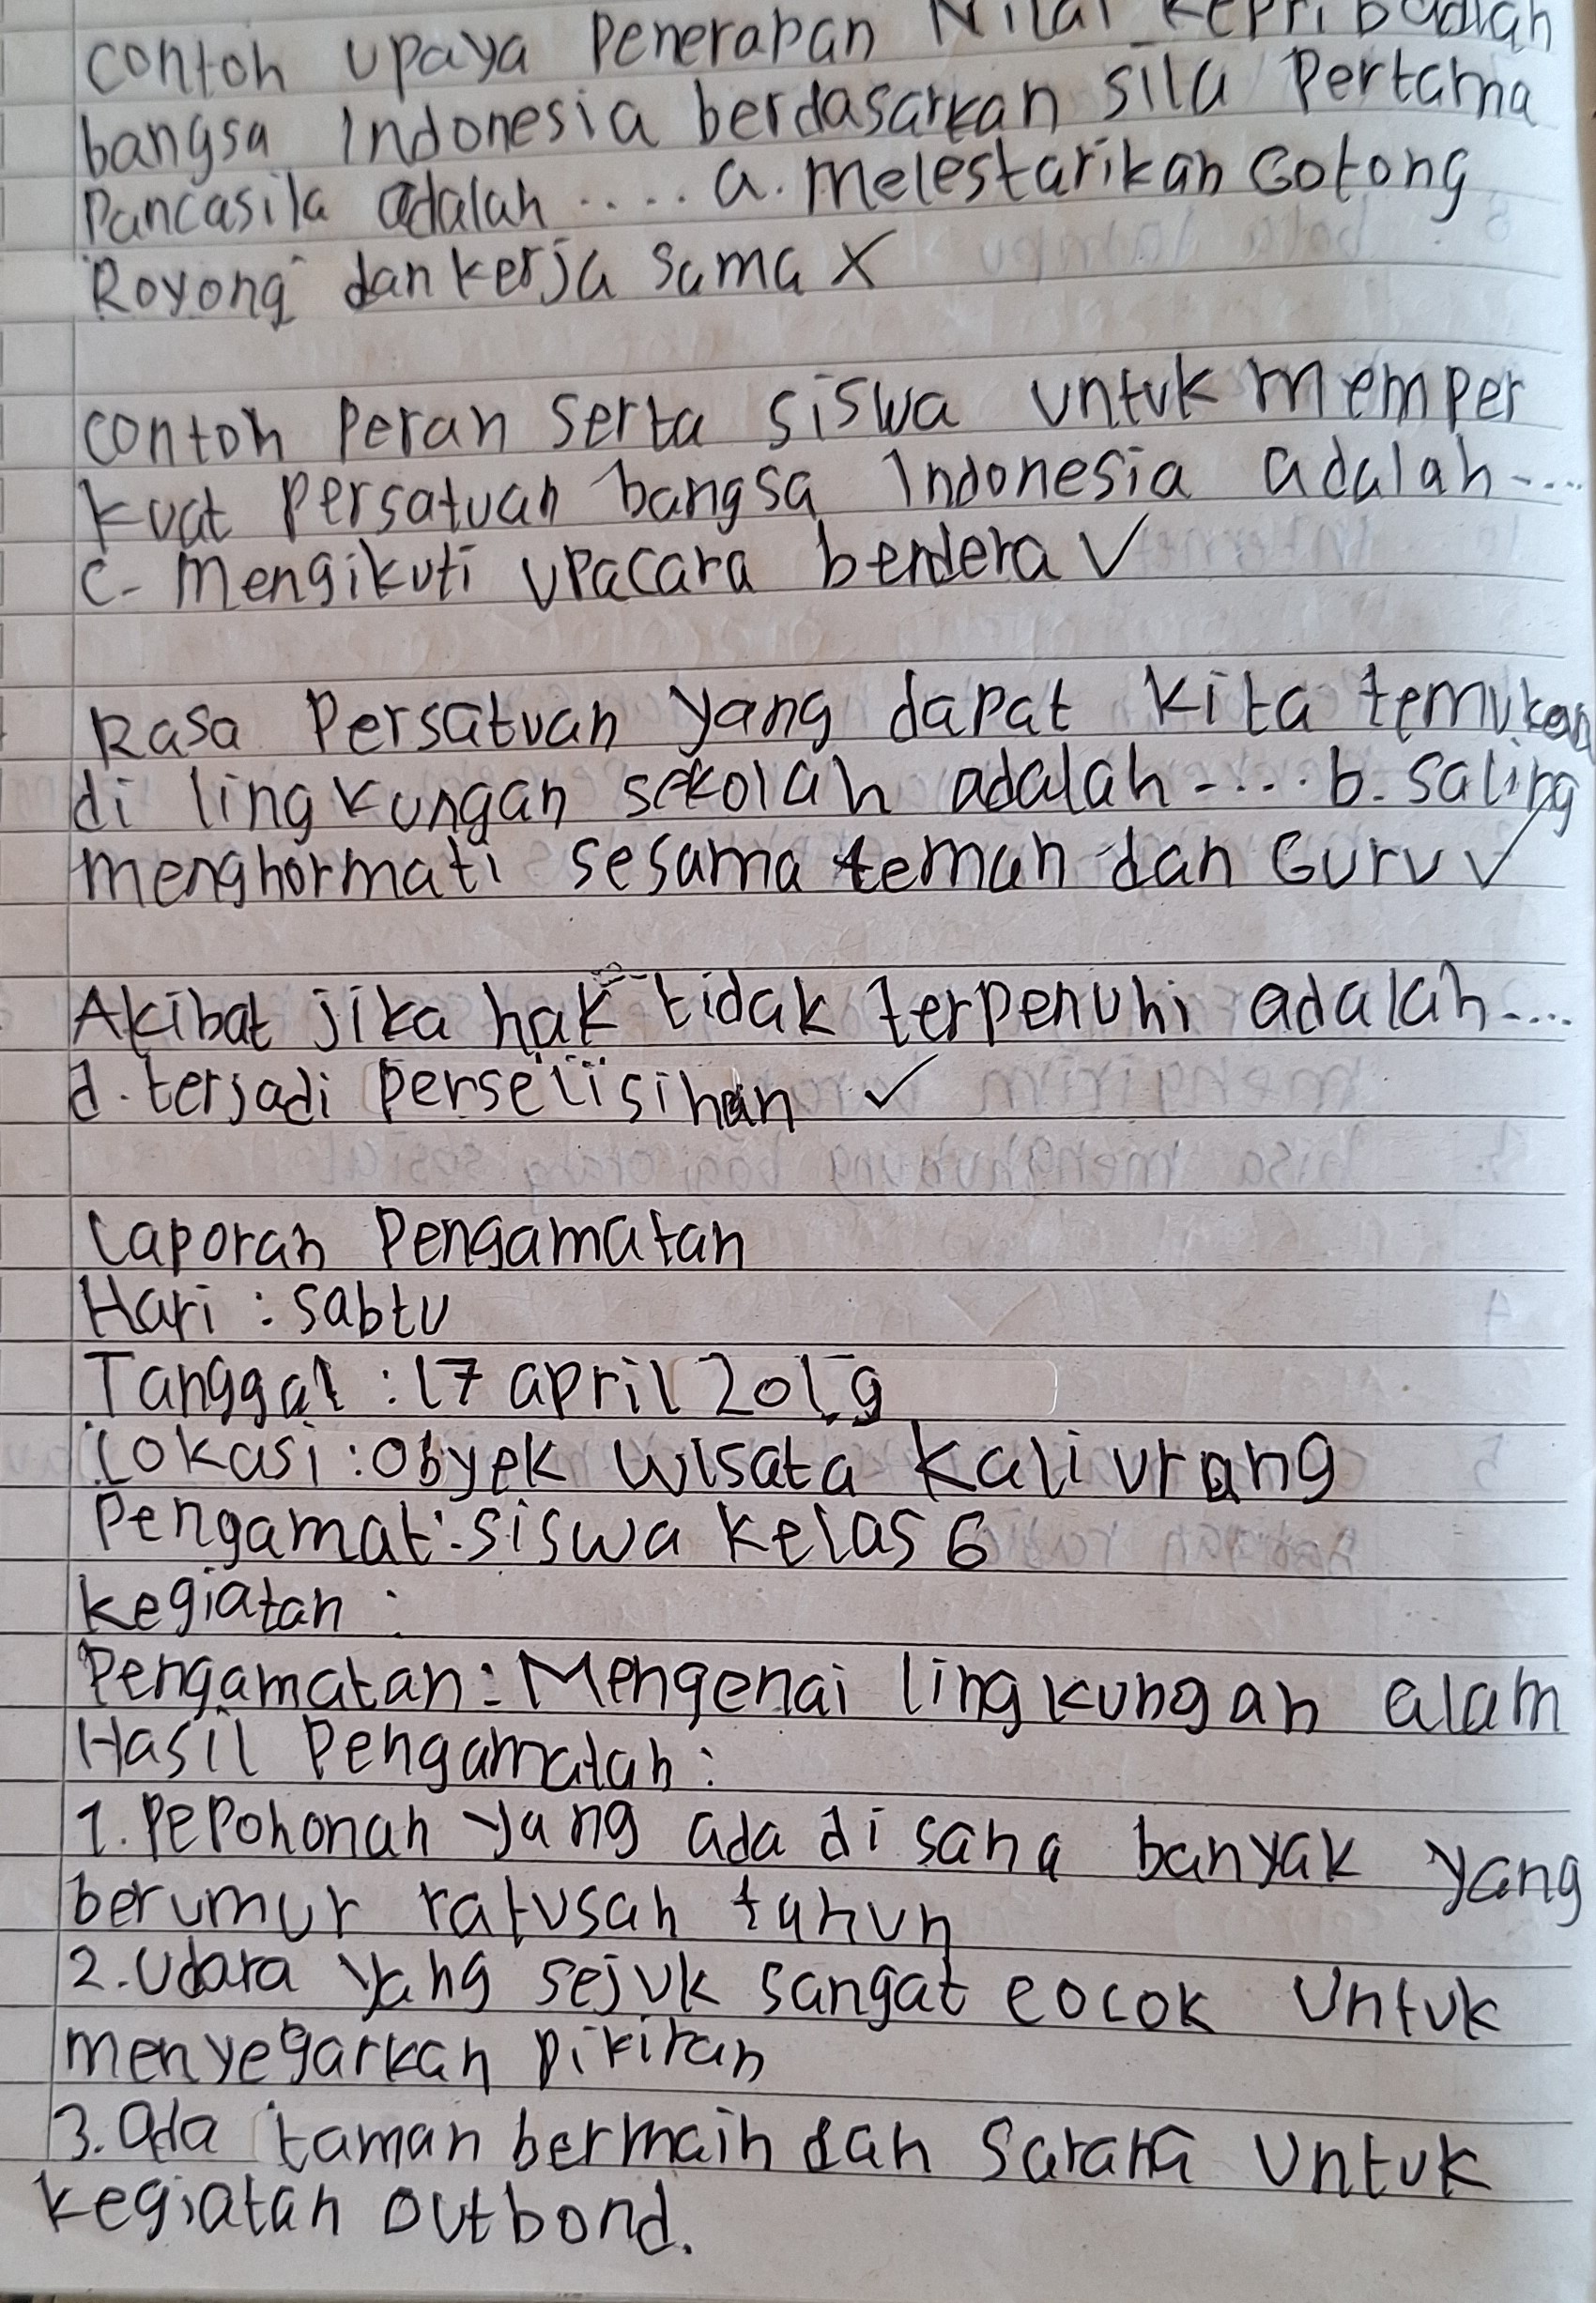 contoh upaya Penerapan Nilai kepribadian
bangsa Indonesia berdasarkan sila Pertama
Pancasila adalah .... a. Melestarikan Gotong
Royong dan kerja sama X
contoh Peran serta siswa untuk memper
kuat Persatuan bangsa Indonesia adalah ....
c- Mengikuti upacara bendera ✓
Rasa Persatuan yang dapat kita temukan
di lingkungan sekolah adalah .... b. saling
menghormati sesama teman dan Guru ✓
Akibat jika hak tidak terpenuhi adalah ....
d. terjadi perselisihan ✓
Laporan Pengamatan
Hari : sabtu
Tanggal : 17 april 2019
Lokasi : Obyek wisata kaliurang
Pengamat : siswa kelas 6
kegiatan :
Pengamatan : Mengenai lingkungan alam
Hasil Pengamatan :
1. Pepohonan yang ada di sana banyak yang
berumur ratusan tahun
2. Udara yang sejuk sangat cocok Untuk
menyegarkan pikiran
3. Ada taman bermain dan Sarana Untuk
kegiatan outbond.